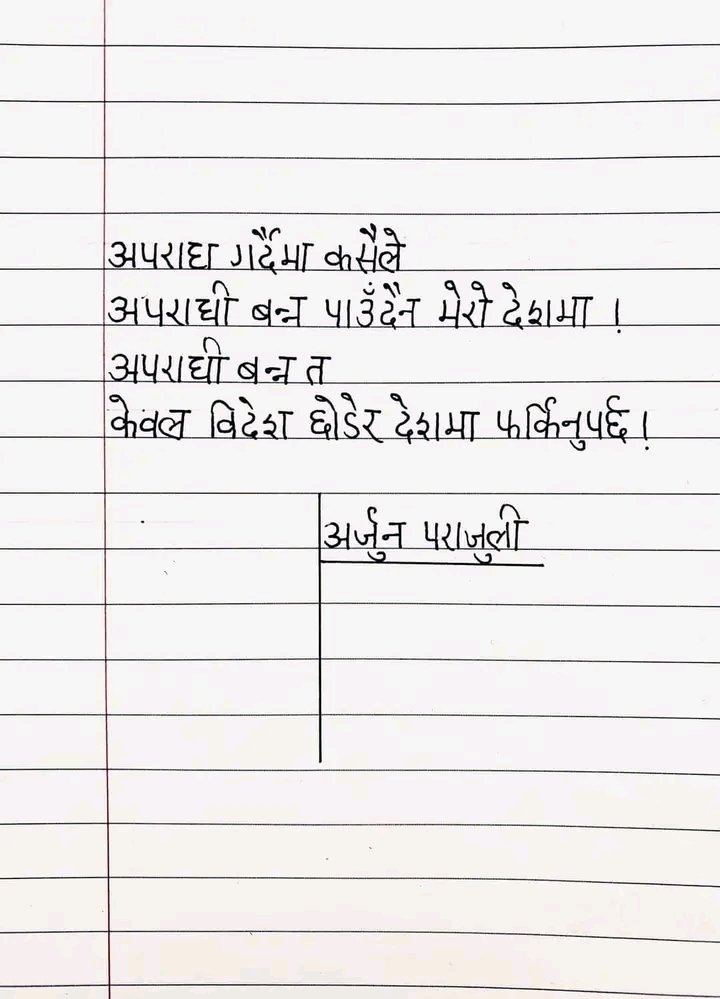 अपराध गर्दैमा कसैले
अपराधी बन्न पाउँदैन मेरो देशमा !
अपराधी बन्न त
केवल विदेश छोडेर देशमा फर्किनुपर्छ !
अर्जुन पराजुली